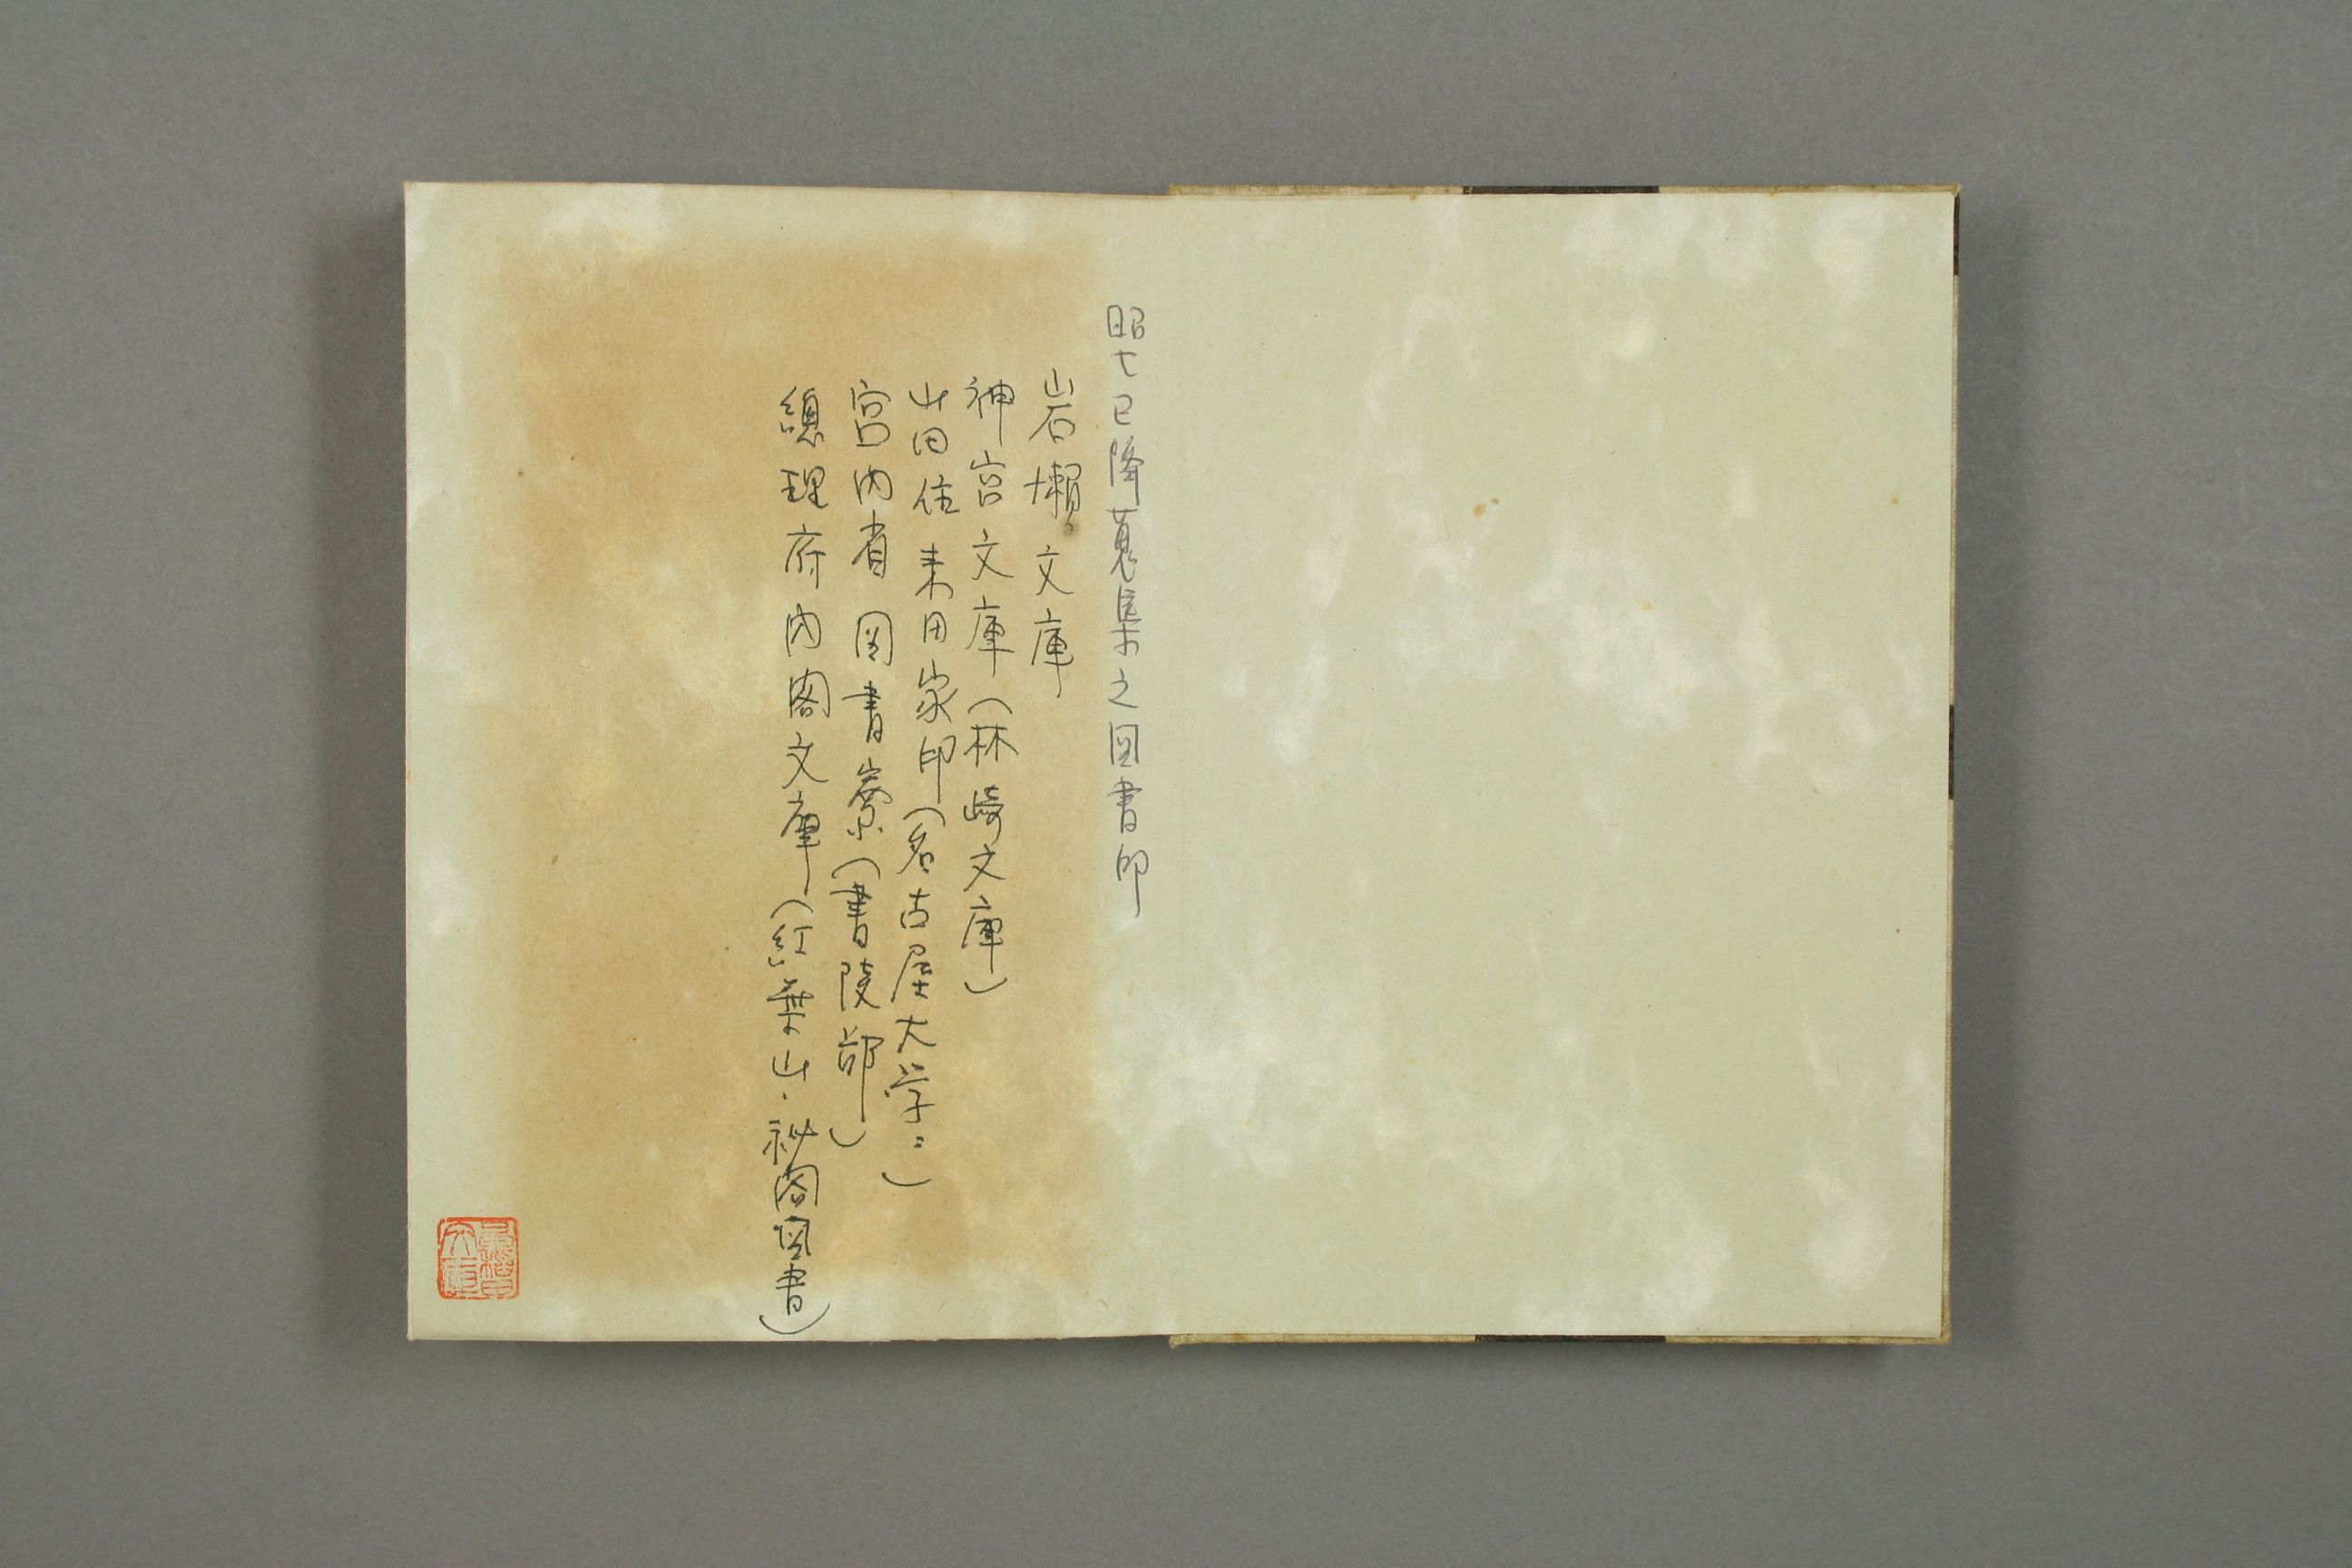 昭七已降蒐集之図書印
岩瀬文庫
神宮文庫(林崎文庫)
山田住来田家印(名古屋大学ニ)
宮内省図書寮(書陵部)
総理府内閣文庫(紅葉山・秘閣図書)